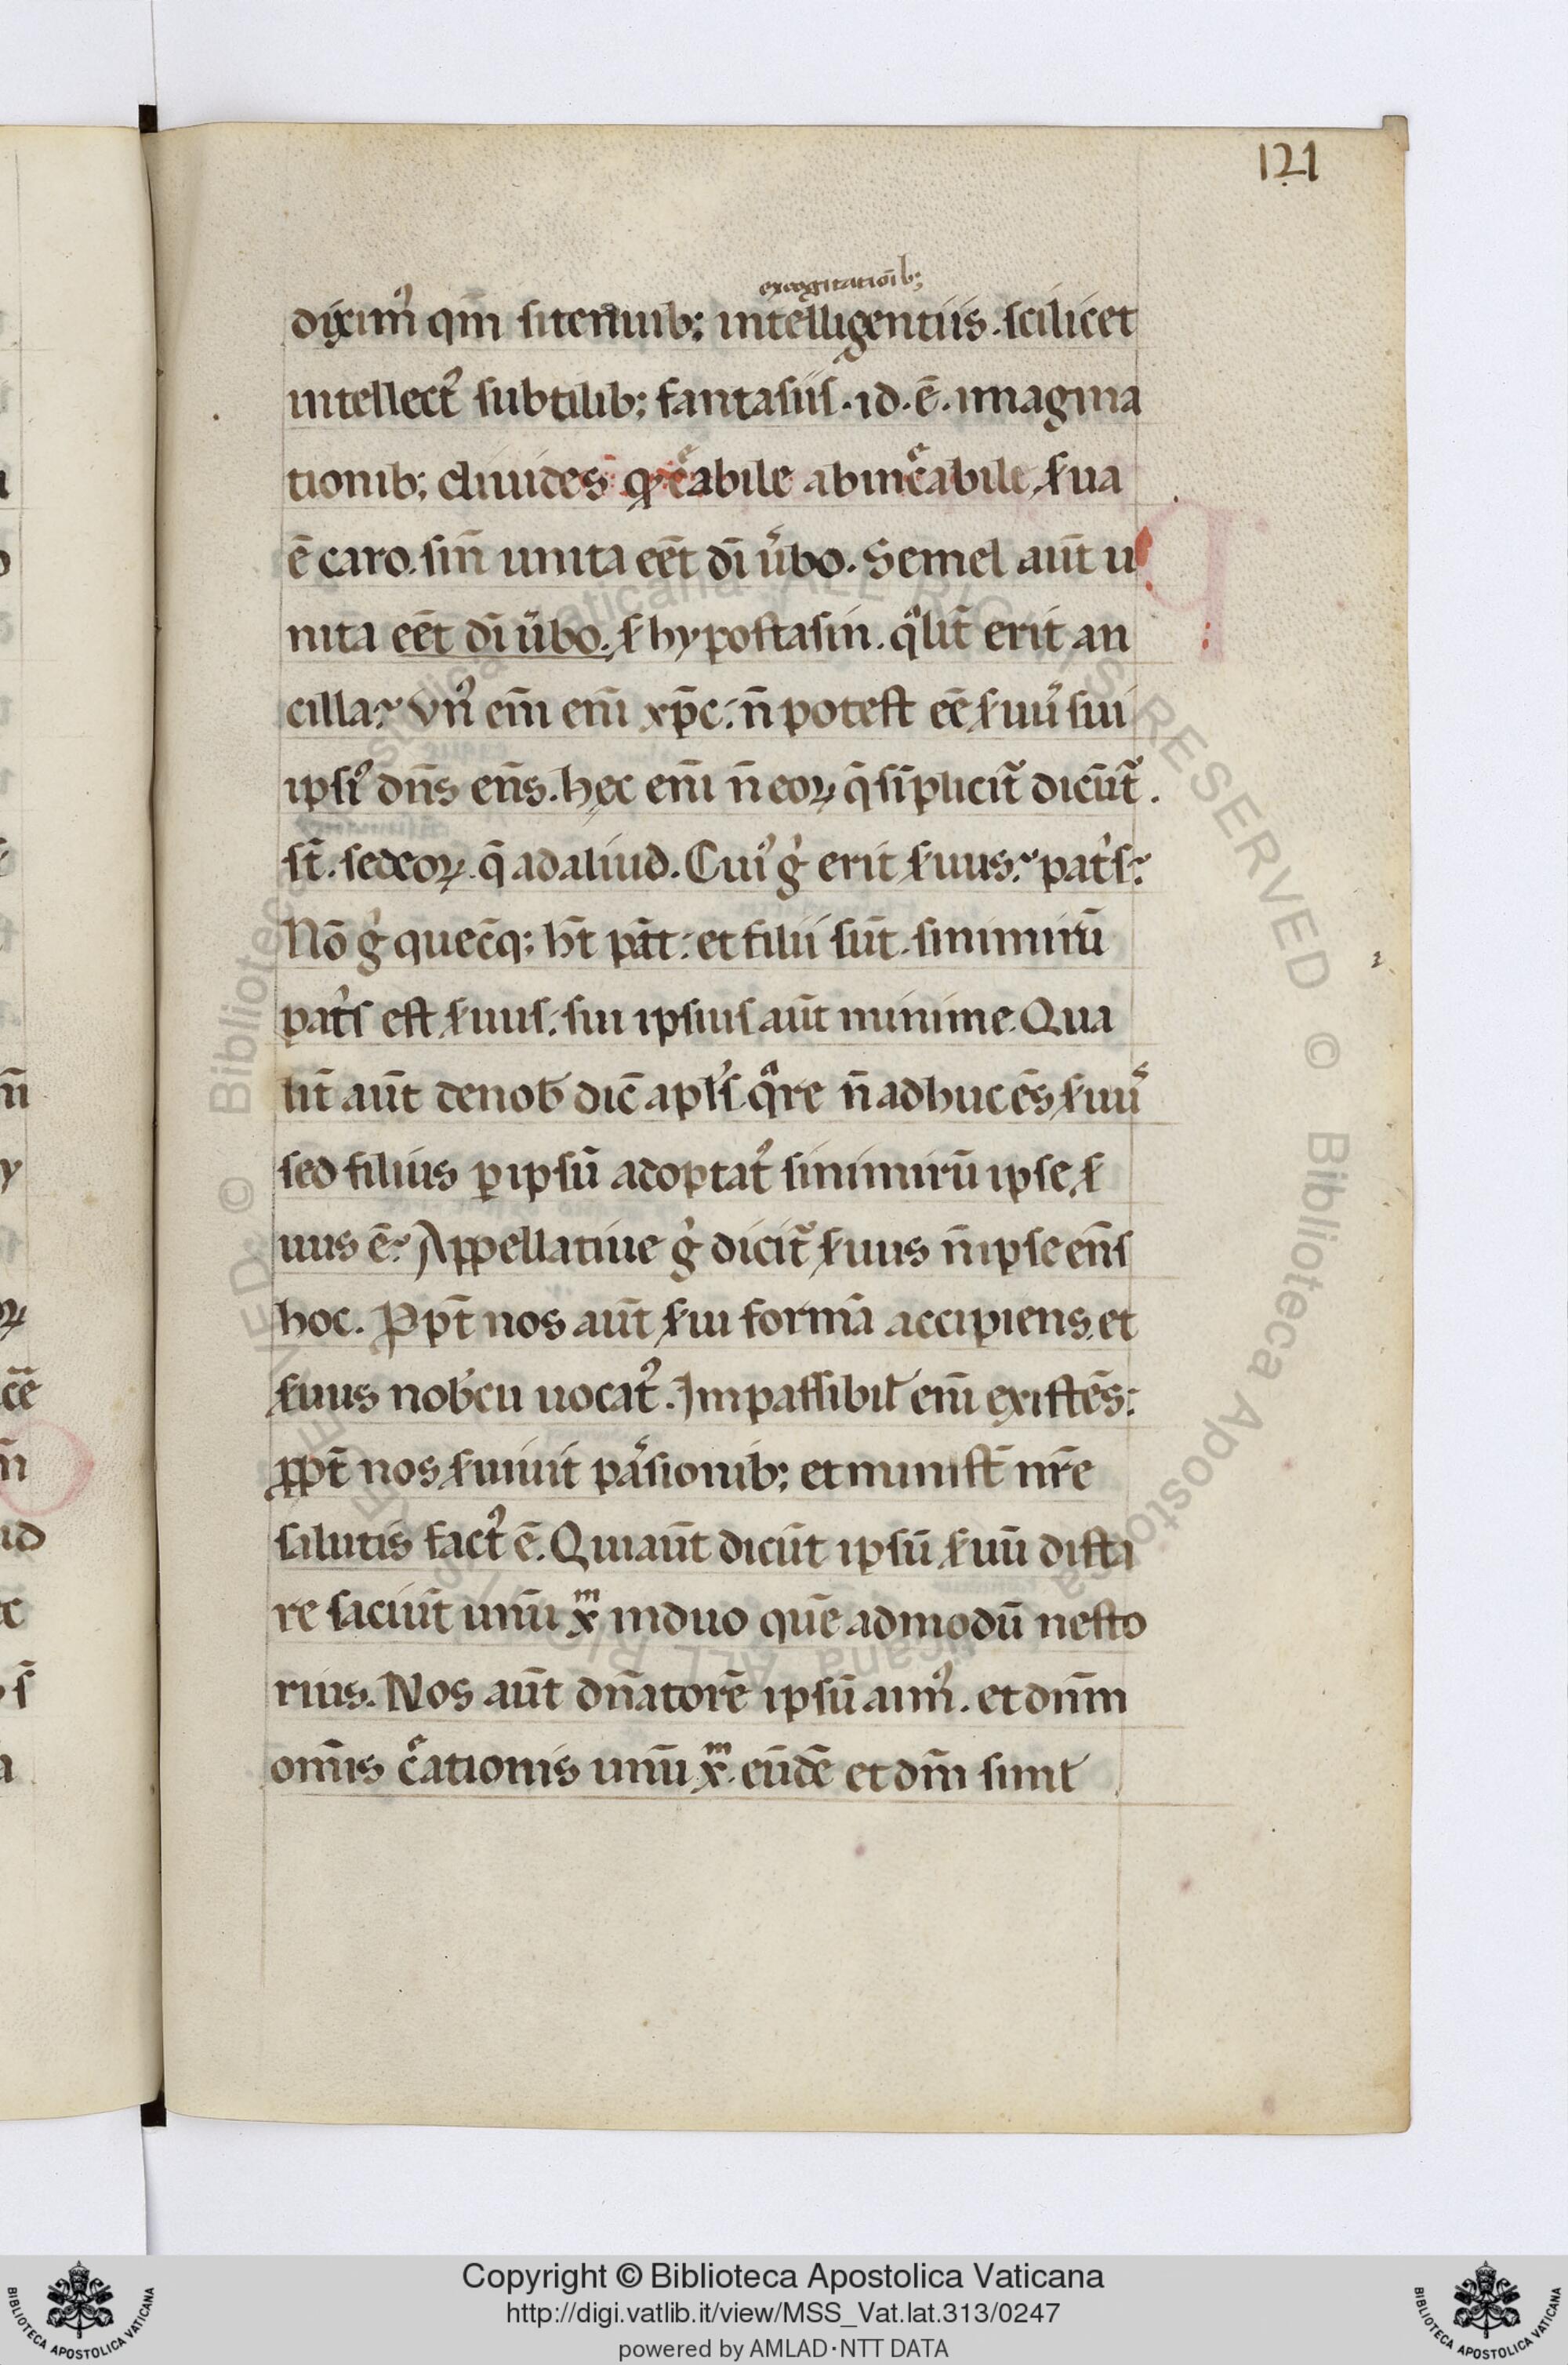 121
excogitatioīb;
diximꝰ qm̄ si tenuib; intelligentiis. scilicet
intellectꝰ subtilib; fantasiis. id. ē. imagina
tionib; diuides qͥ creabile ab increabile, s̄ua
ē caro. sin̄ unita eēt di ūbo. Semel aūt u
nita eēt di ūbo. s̄ hypostasin. qͣlit̄ erit an
cilla? Vnꝰ em̄ em̄ xp̄c: n̄ potest eē s̄uuꝰ sui
ipsiꝰ dn̄s en̄s. hęc em̄ n̄ eoꝝ q̄ sīplicit̄ dicūt̄.
st̄. sed eoꝝ. q̄ ad aliud. Cuiꝰ gͦ erit s̄uus? pat̓s?
Nō gͦ quecūq; hn̄t pat̄: et filii sūt. si nimirū
pat̓s est s̄uus: sui ipsius aūt minime. Qua
lit̄ aūt de nob̄ dic̄ apl̓s qͣre n̄ adhuc ēs s̄uuꝰ
sed filius ꝑ ipsū adoptatꝰ si nimirū ipse s̄
uus ē? Appellatiue gͦ dicit̄ s̄uus n̄ ipse en̄s
hoc. Ꝓpt̄ nos aūt s̄ui formā accipiens, et
s̄uus nob̄cū uocatꝰ. Impassibil̓ em̄ existēs:
ꝓpt̄ nos s̄uiuit passionib; et minist̄ nr̄e
salutis factꝰ ē. Qui aūt dicūt ipsū s̄uū dista
re faciūt unū xᵐ in duo quē admodū nesto
rius. Nos aūt dn̄atorē ipsū aimꝰ. et dnm̄
om̄is c̄ationis unū xᵐ. eūdē et dm̄ siml̓
Copyright © Biblioteca Apostolica Vaticana
http://digi.vatlib.it/view/MSS_Vat.lat.313/0247
powered by AMLAD·NTT DATA